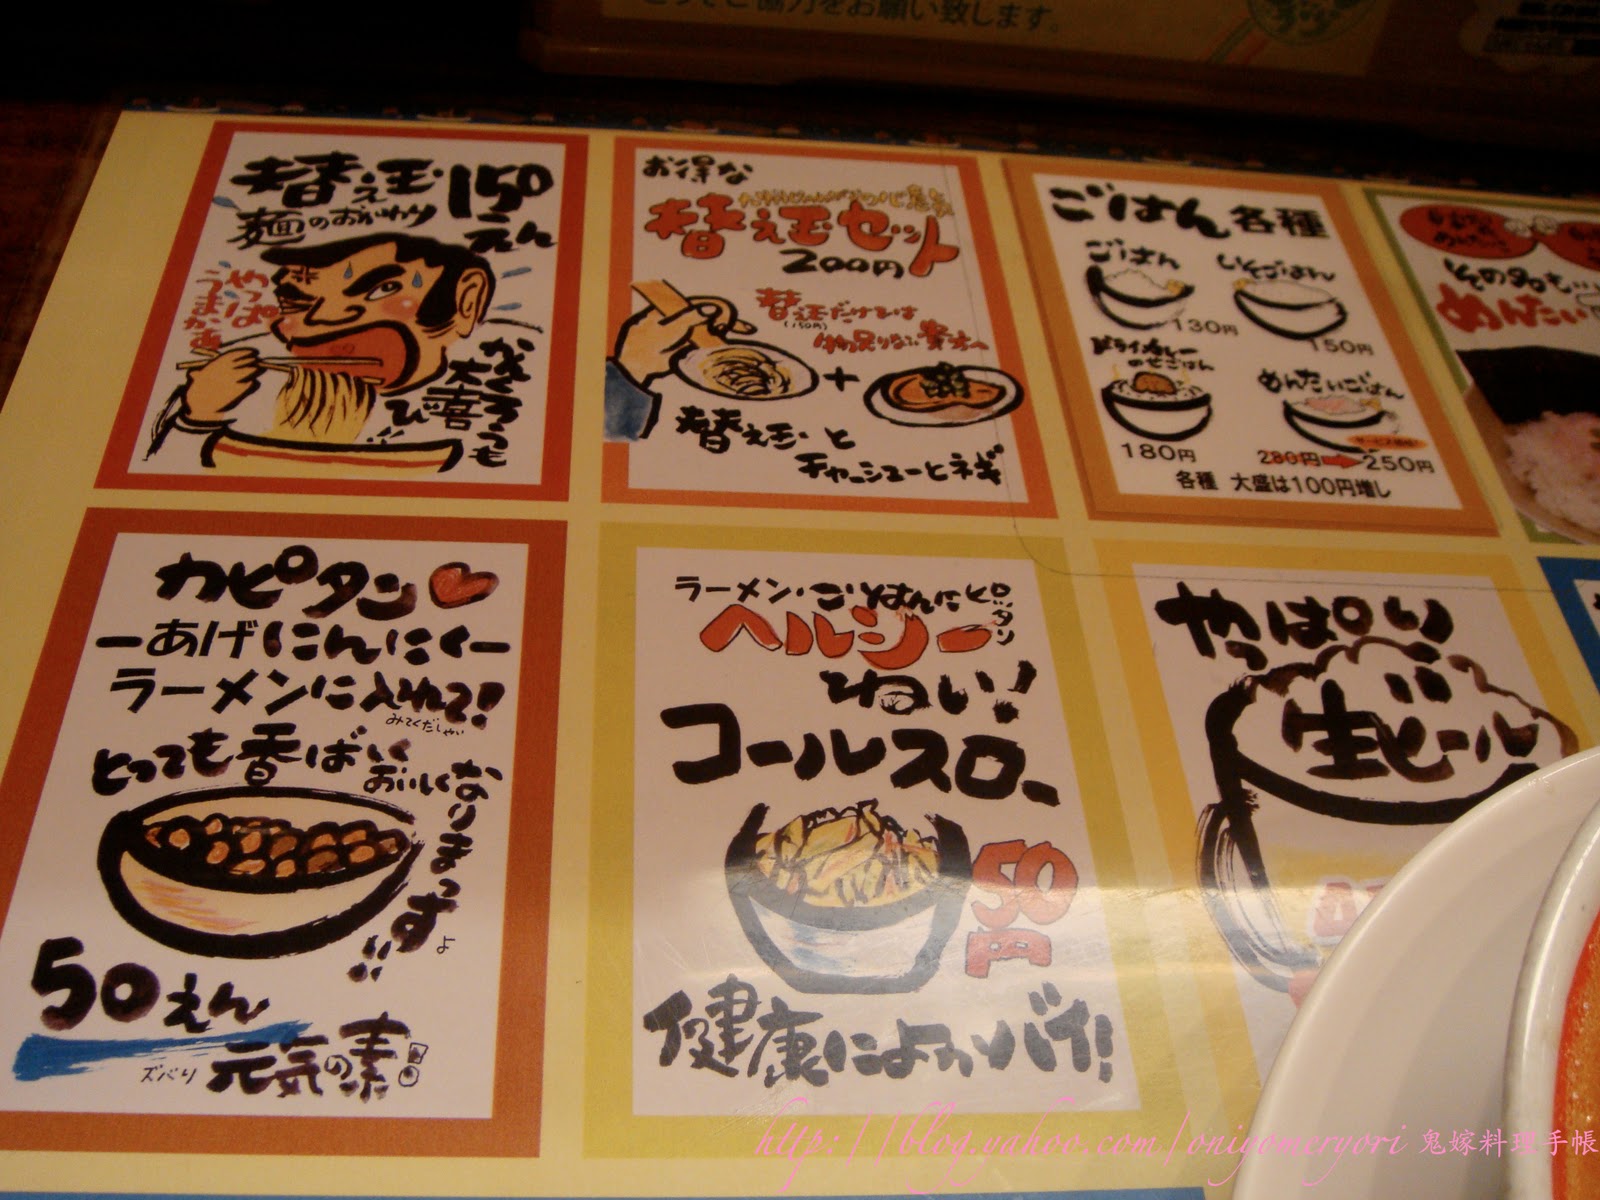 ご協力をお願い致します。
替え玉
150
えん
麺のおかわり
やっぱ
うまかぁ
かえくろうも
大喜
び!!
お得な
替え玉セット
200円
替玉だけでは
(150円)
物足りない貴方へ
+
替え玉と
チャーシューとネギ
ごはん各種
ごはん
130円
いそごはん
150円
ドライカレー
のせごはん
180円
めんたいごはん
サービス価格!
280円→250円
各種 大盛は100円増し
その名も…
めんたい
カピタン
ーあげにんにくー
ラーメンに入れて!
みてくだしゃい
とっても香ばい
おいしくなりまっすよ!!
50えん
ズバリ 元気の素!!
ラーメン・ごはんにピッタシ
ヘルシー
ねぃ!
コールスロー
150円
健康によかバイ!
やっぱり
生ビール
http://blog.yahoo.com/oniyomeryori 鬼嫁料理手帳